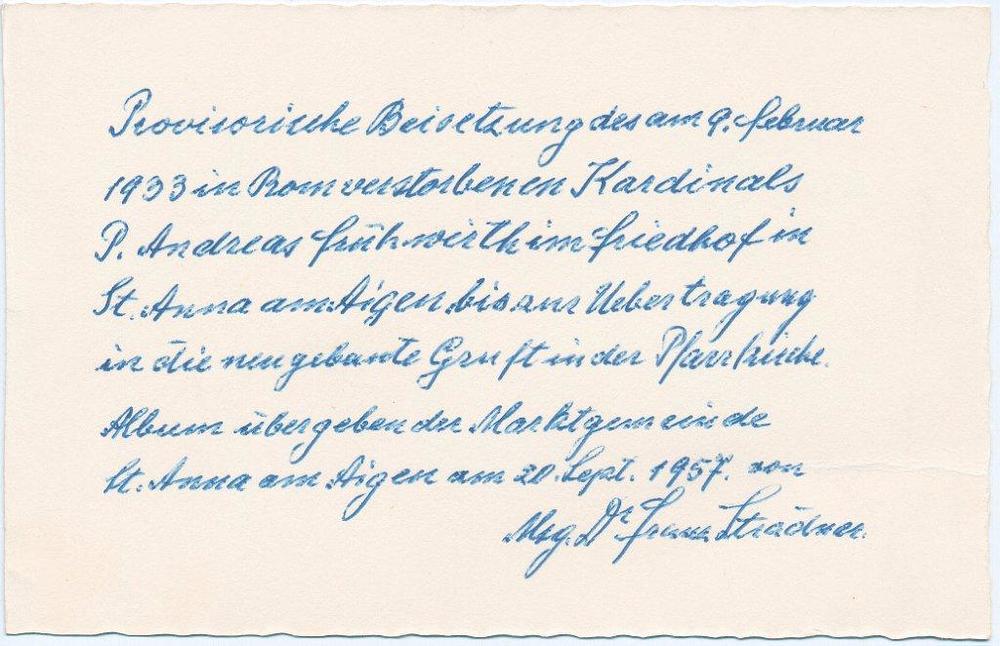 Provisorische Beisetzung des am 9. Februar
1933 in Rom verstorbenen Kardinals
P. Andreas Frühwirth im Friedhof in
St. Anna am Aigen bis zur Uebertragung
in die neugebaute Gruft in der Pfarrkirche.
Album übergeben der Marktgemeinde
St. Anna am Aigen am 20. Sept. 1957. von
Msg. Dr Franz Strädner.